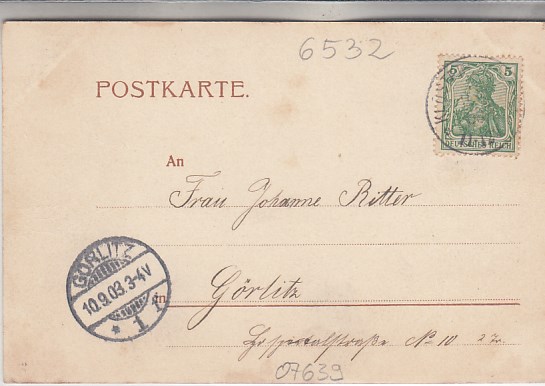 6532
POSTKARTE.
5 5
DEUTSCHES REICH
An
Frau Johanne Ritter
GÖRLITZ
10.9.03.3-4V
* 1 1
in Görlitz
No 10 2 Tr.
07639